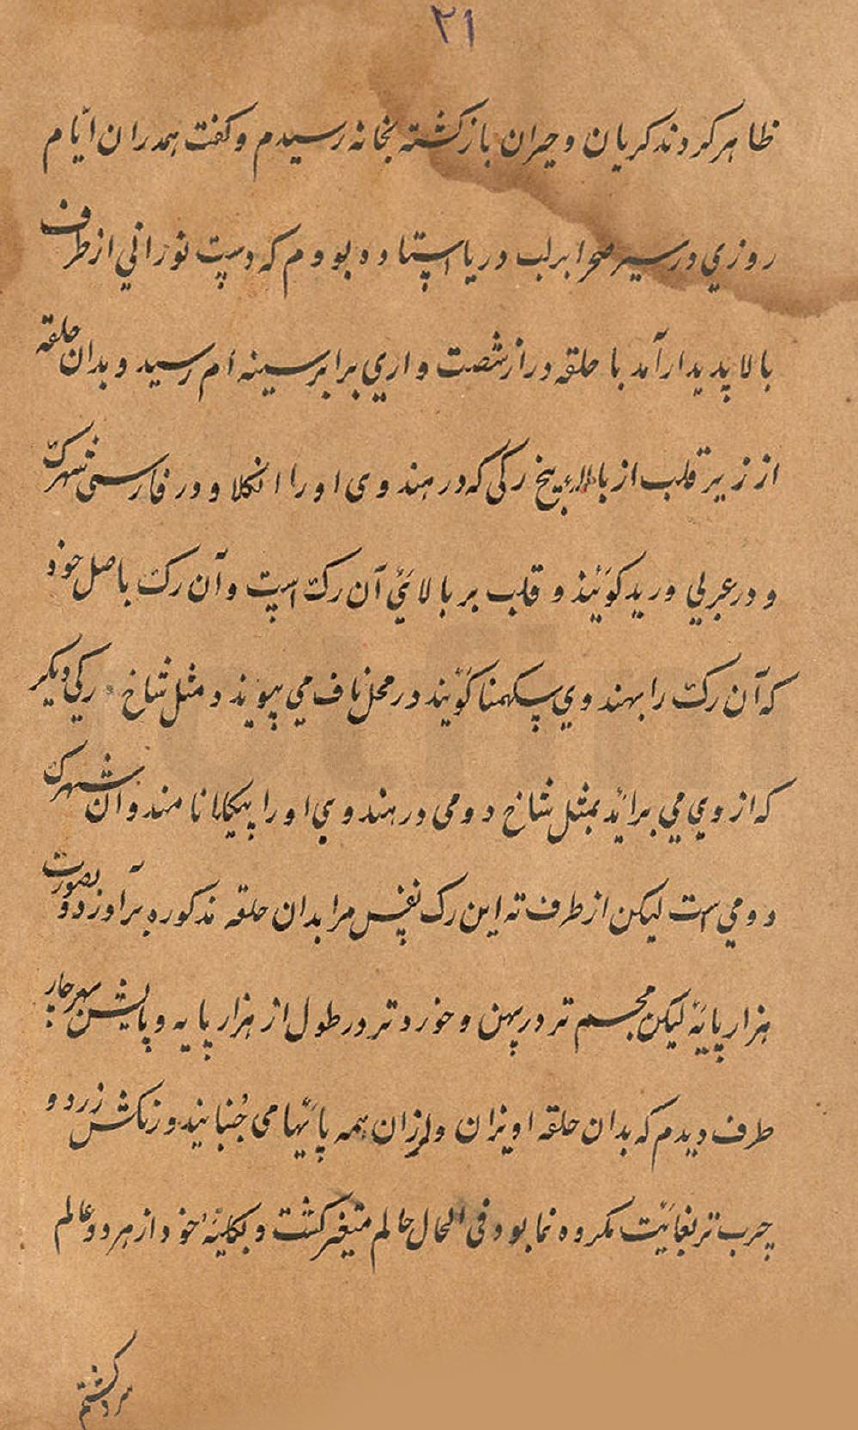 ۲۱
ظاهر کردند کریان و حیران بازکشته بخانه رسیدم و کفت همدران ایّام
روزي در سیر صحرا برلب دریا استاده بودم که دست نوراني از طرف
بالا پدیدار آمد با حلقه دراز شصت واري برابر سینه ام رسید و بدان حلقه
از زیر قلب از بالاء بیخ رکی که در هندوی او را انکلا و در فارسی شهرک
و در عربي ورید کوئیند و قلب بر بالائي آن رک است و آن رک باصل خود
که آن رک را بهندوي سکهمنا کوئیند در محل ناف مي پیوند د مثل شاخ رکی دیکر
که از وي مي براید بمثل شاخ دومی در هندوي او را پنکلا نامند و آن شهرک
دومي است لیکن از طرف ته این رک نفس مرا بدان حلقه مذکوره برآورد و بصورت
هزار پایه لیکن مجسم تر در پهن و خورد تر در طول از هزار پایه و پایش بهر چار
طرف دیدم که بدان حلقه اویزان و لرزان همه پائیها می جُنبانید و رنکش زرد و
چرب تر بغائیت مکروه نما بود فی الحال حالم متغیر کشت و بکلیّه خود از هر دو عالم
سرد کشتم